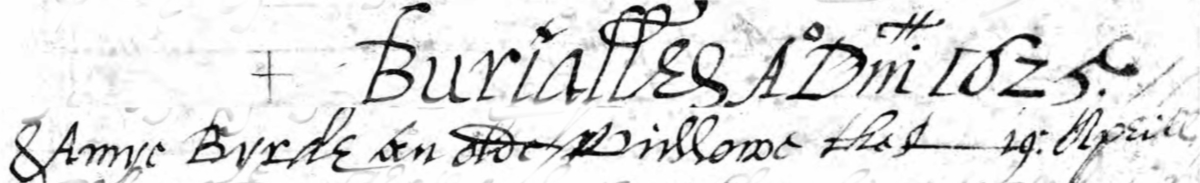 + Burialles Ao Dni 1625.
& Annye Byrde an olde Widdowe the 19: Aprill